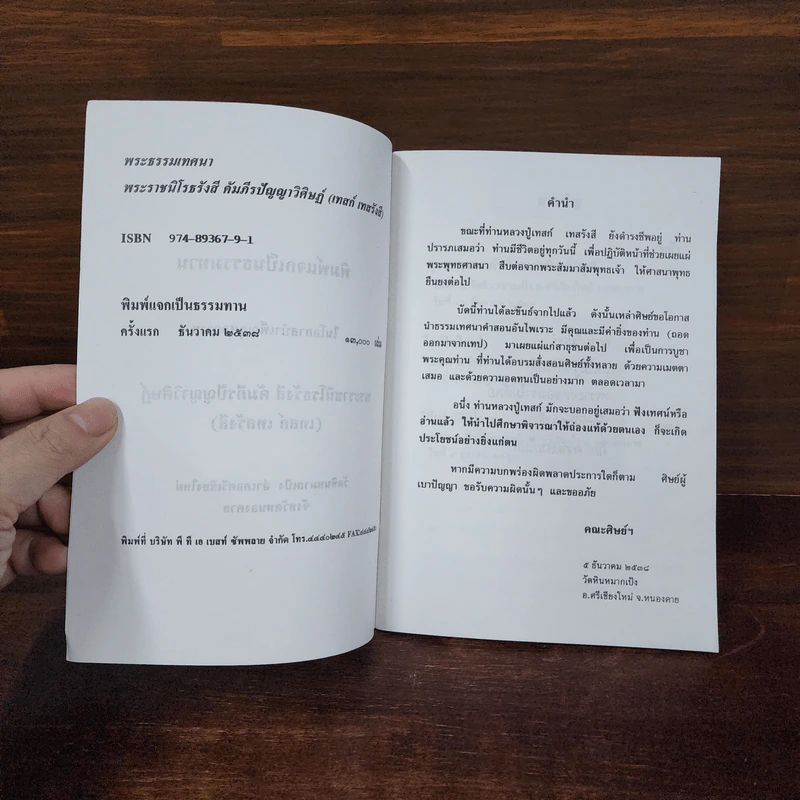 พระธรรมเทศนา
พระราชนิโรธรังสี คัมภีรปัญญาวิศิษฏ์ (เทสก์ เทสรังสี)
ISBN 974-89367-9-1
พิมพ์แจกเป็นธรรมทาน
ครั้งแรก ธันวาคม ๒๕๓๘ ๑๓,๐๐๐ เล่ม
พิมพ์ที่ บริษัท พี ที เอ เบสท์ ซัพพลาย จำกัด โทร.๔๔๔๐๒๔๕
คำนำ
ขณะที่ท่านหลวงปู่เทสก์ เทสรังสี ยังดำรงชีพอยู่ ท่าน
ปรารภเสมอว่า ท่านมีชีวิตอยู่ทุกวันนี้ เพื่อปฏิบัติหน้าที่ช่วยเผยแผ่
พระพุทธศาสนา สืบต่อจากพระสัมมาสัมพุทธเจ้า ให้ศาสนาพุทธ
ยืนยงต่อไป
บัดนี้ท่านได้ละขันธ์จากไปแล้ว ดังนั้นเหล่าศิษย์ขอโอกาส
นำธรรมเทศนาคำสอนอันไพเราะ มีคุณและมีค่ายิ่งของท่าน (ถอด
ออกมาจากเทป) มาเผยแผ่แก่สาธุชนต่อไป เพื่อเป็นการบูชา
พระคุณท่าน ที่ท่านได้อบรมสั่งสอนศิษย์ทั้งหลาย ด้วยความเมตตา
เสมอ และด้วยความอดทนเป็นอย่างมาก ตลอดเวลามา
อนึ่ง ท่านหลวงปู่เทสก์ มักจะบอกอยู่เสมอว่า ฟังเทศน์หรือ
อ่านแล้ว ให้นำไปศึกษาพิจารณาให้ถ่องแท้ด้วยตนเอง ก็จะเกิด
ประโยชน์อย่างยิ่งแก่ตน
หากมีความบกพร่องผิดพลาดประการใดก็ตาม ศิษย์ผู้
เบาปัญญา ขอรับความผิดนั้นๆ และขออภัย
คณะศิษย์ฯ
๕ ธันวาคม ๒๕๓๘
วัดหินหมากเป้ง
อ.ศรีเชียงใหม่ จ.หนองคาย